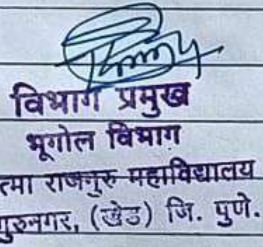 विभाग प्रमुख
भूगोल विभाग
त्मा राजगुरु महाविद्यालय
गुरुनगर, (खेड) जि. पुणे.